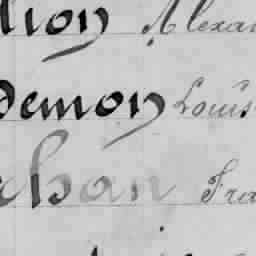 lion Alexan
demon Louis
chan Fra